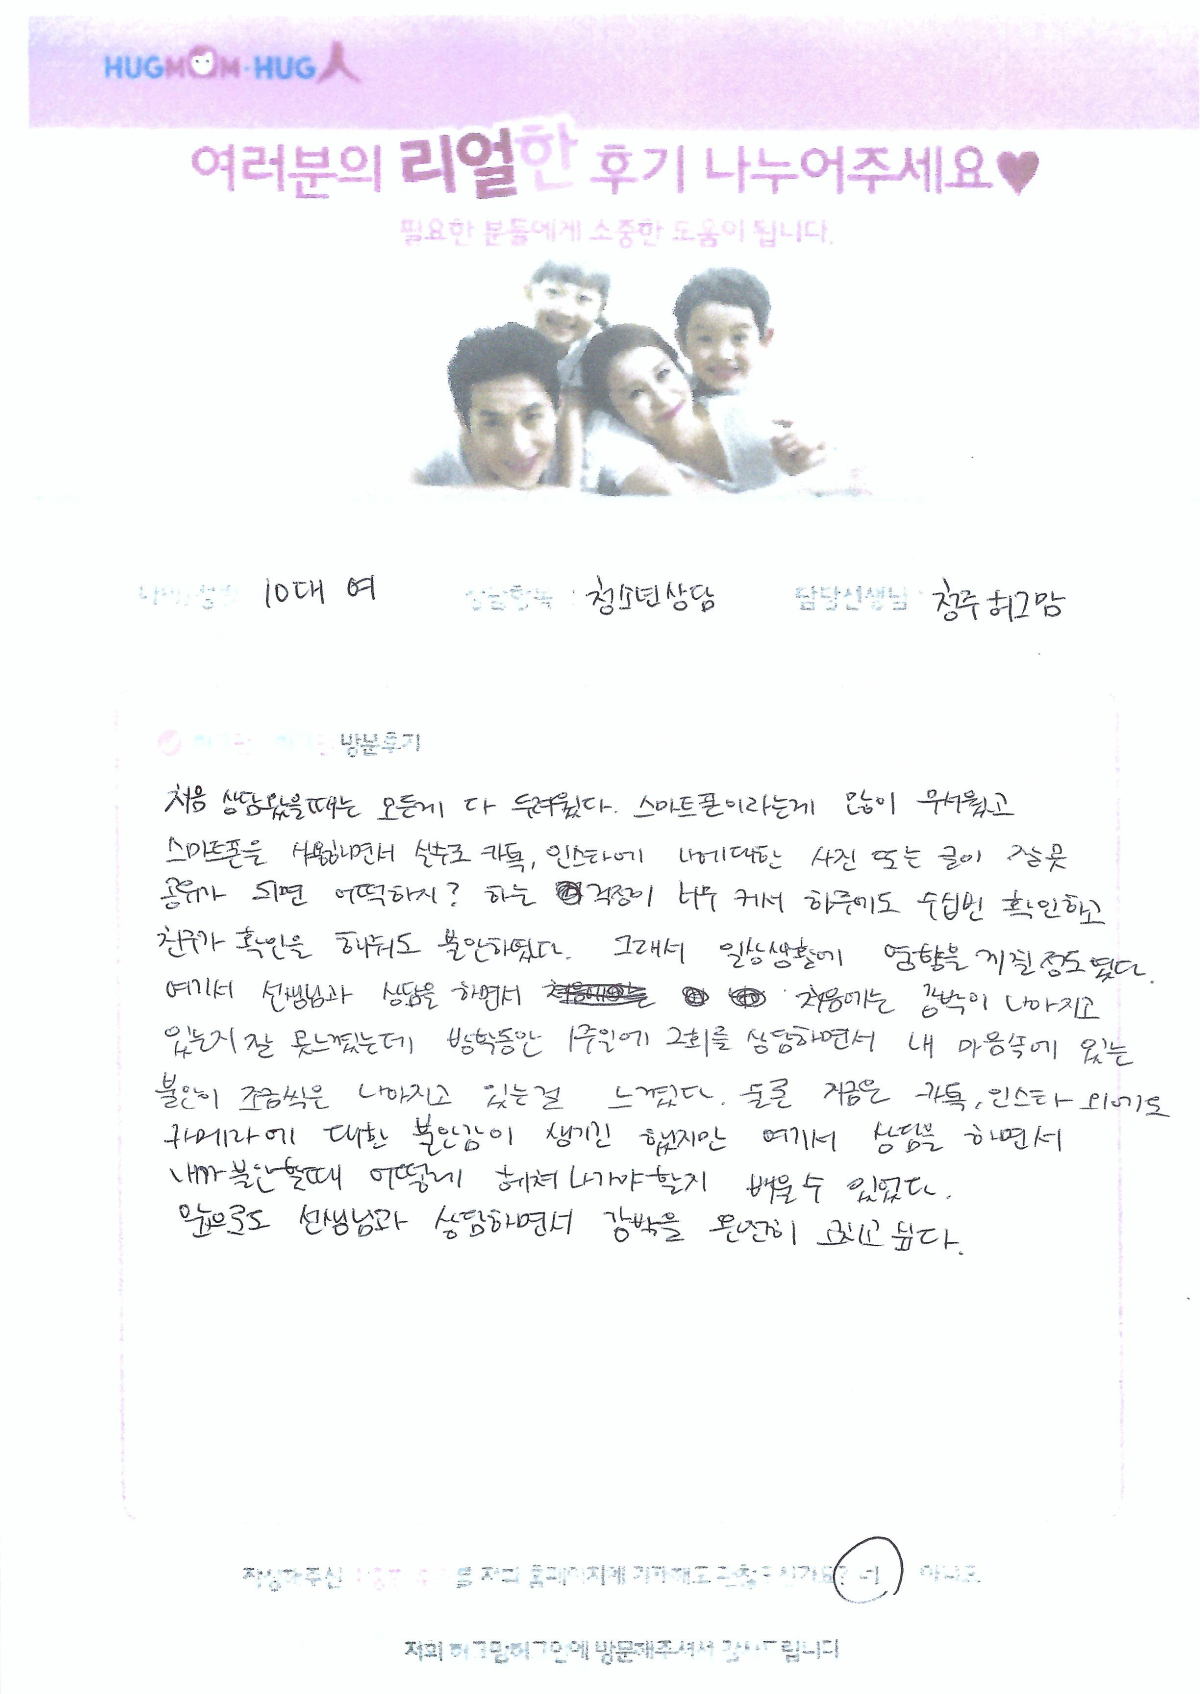 HUGMOM·HUG人
여러분의 리얼한 후기 나누어주세요♥
필요한 분들에게 소중한 도움이 됩니다.
나이/성별 10대 여 상담항목 : 청소년상담 담당선생님 : 청주허그맘
허그맘 허그인 방문후기
처음 상담왔을때는 모든게 다 두려웠다. 스마트폰이라는게 많이 무서웠고
스마트폰을 사용하면서 실수로 카톡, 인스타에 나에대한 사진 또는 글이 잘못
공유가 되면 어떡하지? 하는 걱정이 너무 커서 하루에도 수십번 확인하고
친구가 확인을 해줘도 불안하였다. 그래서 일상생활에 영향을 끼칠정도였다.
여기서 선생님과 상담을 하면서 처음에는 강박이 나아지고
있는지 잘 못느꼈는데 방학동안 1주일에 2회를 상담하면서 내 마음속에 있는
불안이 조금씩은 나아지고 있는걸 느꼈다. 물론 지금은 카톡, 인스타 외에도
카메라에 대한 불안감이 생기긴 했지만 여기서 상담을 하면서
내가 불안할때 어떻게 헤쳐나가야할지 배울수 있었다.
앞으로도 선생님과 상담하면서 강박을 온전히 고치고 싶다.
작성해주신 를 저희 홈페이지에 기재해도 괜찮으신가요? 네 아니오
저희 허그맘허그인에 방문해주셔서 감사드립니다